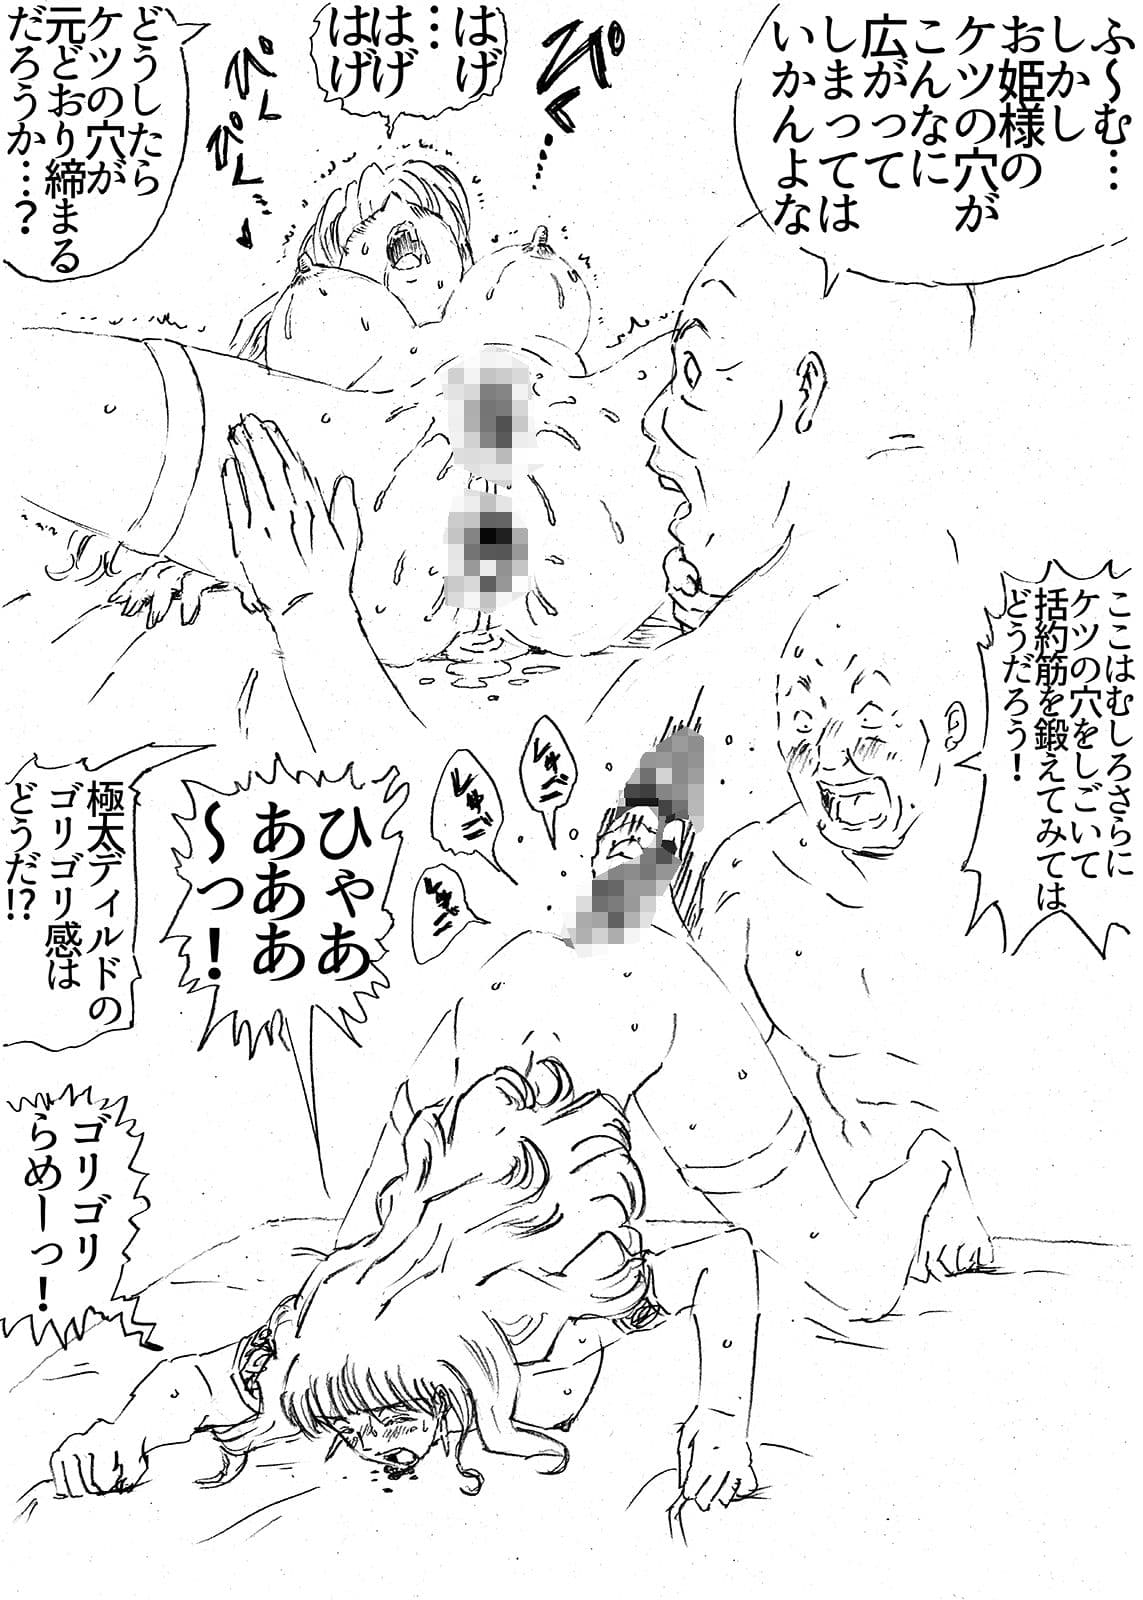 ふ～む…
しかし
お姫様の
ケツの穴が
こんなに
広がって
しまっては
いかんよな
はげ
…
はげ
はげ
どうしたら
ケツの穴が
元どおり締まる
だろうか…？
ここはむしろさらに
ケツの穴をしごいて
括約筋を鍛えてみては
どうだろう！
ひゃあ
あああ
～っ！
極太ディルドの
ゴリゴリ感は
どうだ!?
ゴリゴリ
らめーっ！